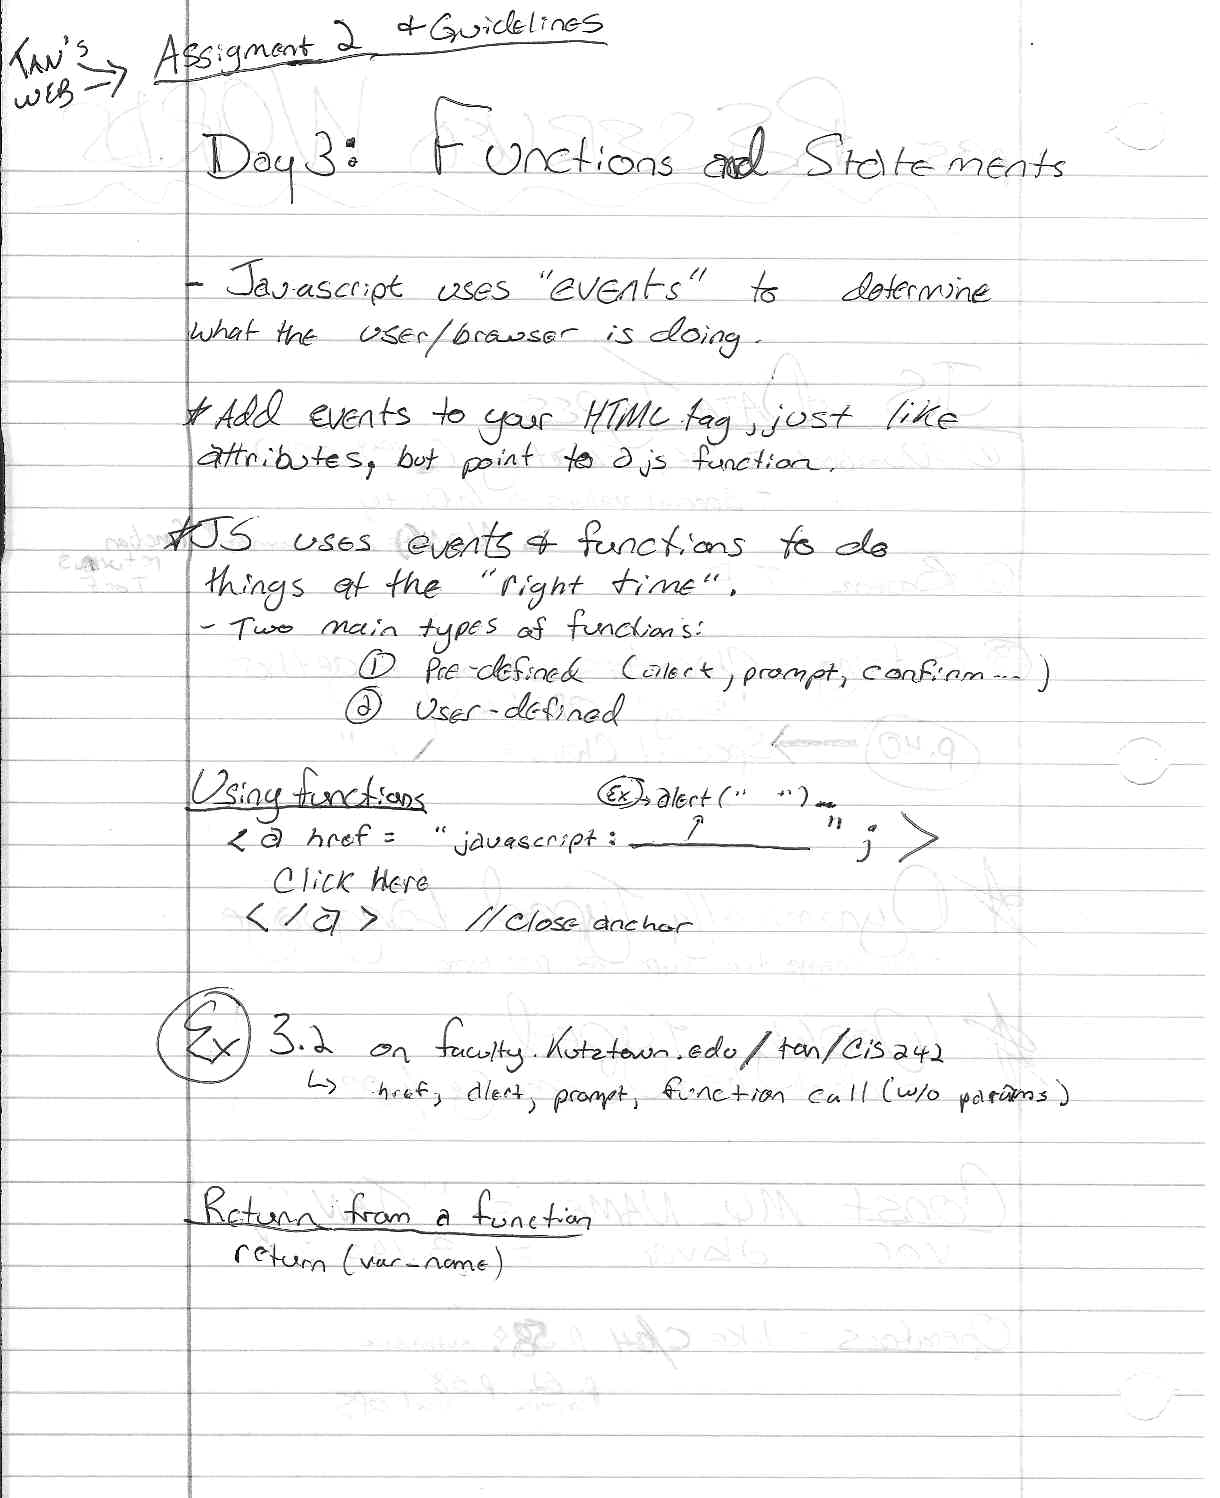 TAN'S WEB → Assigment 2 & Guidelines
Day 3: Functions and Statements
- Javascript uses "events" to determine
what the user/browser is doing.
* Add events to your HTML tag, just like
attributes, but point to a js function.
* JS uses events & functions to do
things at the "right time".
- Two main types of functions:
① Pre-defined (alert, prompt, confirm...)
② User-defined
Using functions
Ex → alert(" ")
<a href = "javascript: ________ "; >
Click Here
</a> // close anchor
Ex 3.2 on faculty.Kutztown.edu/tan/cis242
↳ href, alert, prompt, function call (w/o params)
Return from a function
return (var_name)